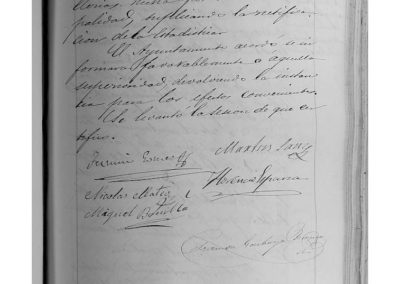 palidad, suplicando la rectifica-
cion de la Estadistica
El Ayuntamiento acordó se in-
formara favorablemente a aquella
superioridad, devolviendo la instan-
cia para los efectos convenientes.
Se levantó la sesion de que cer-
tifico.
Fermin Gomez
Maximo Sanz
Nicolas Mateo
Florencio Esparza
Miguel